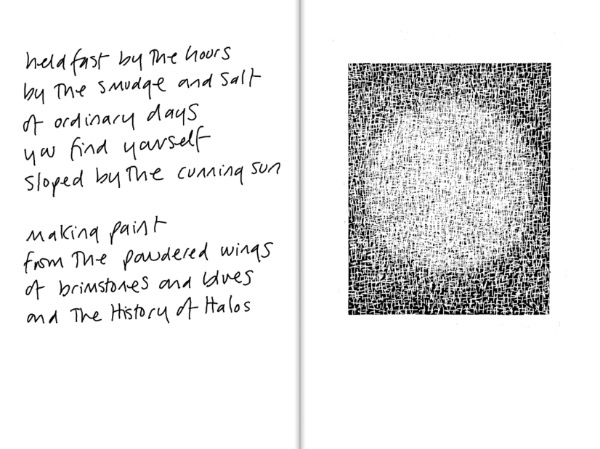 held fast by The hours
by The smudge and salt
of ordinary days
you find yourself
sloped by The cunning sun
making paint
from The powdered wings
of brimstones and blues
and The History of Halos